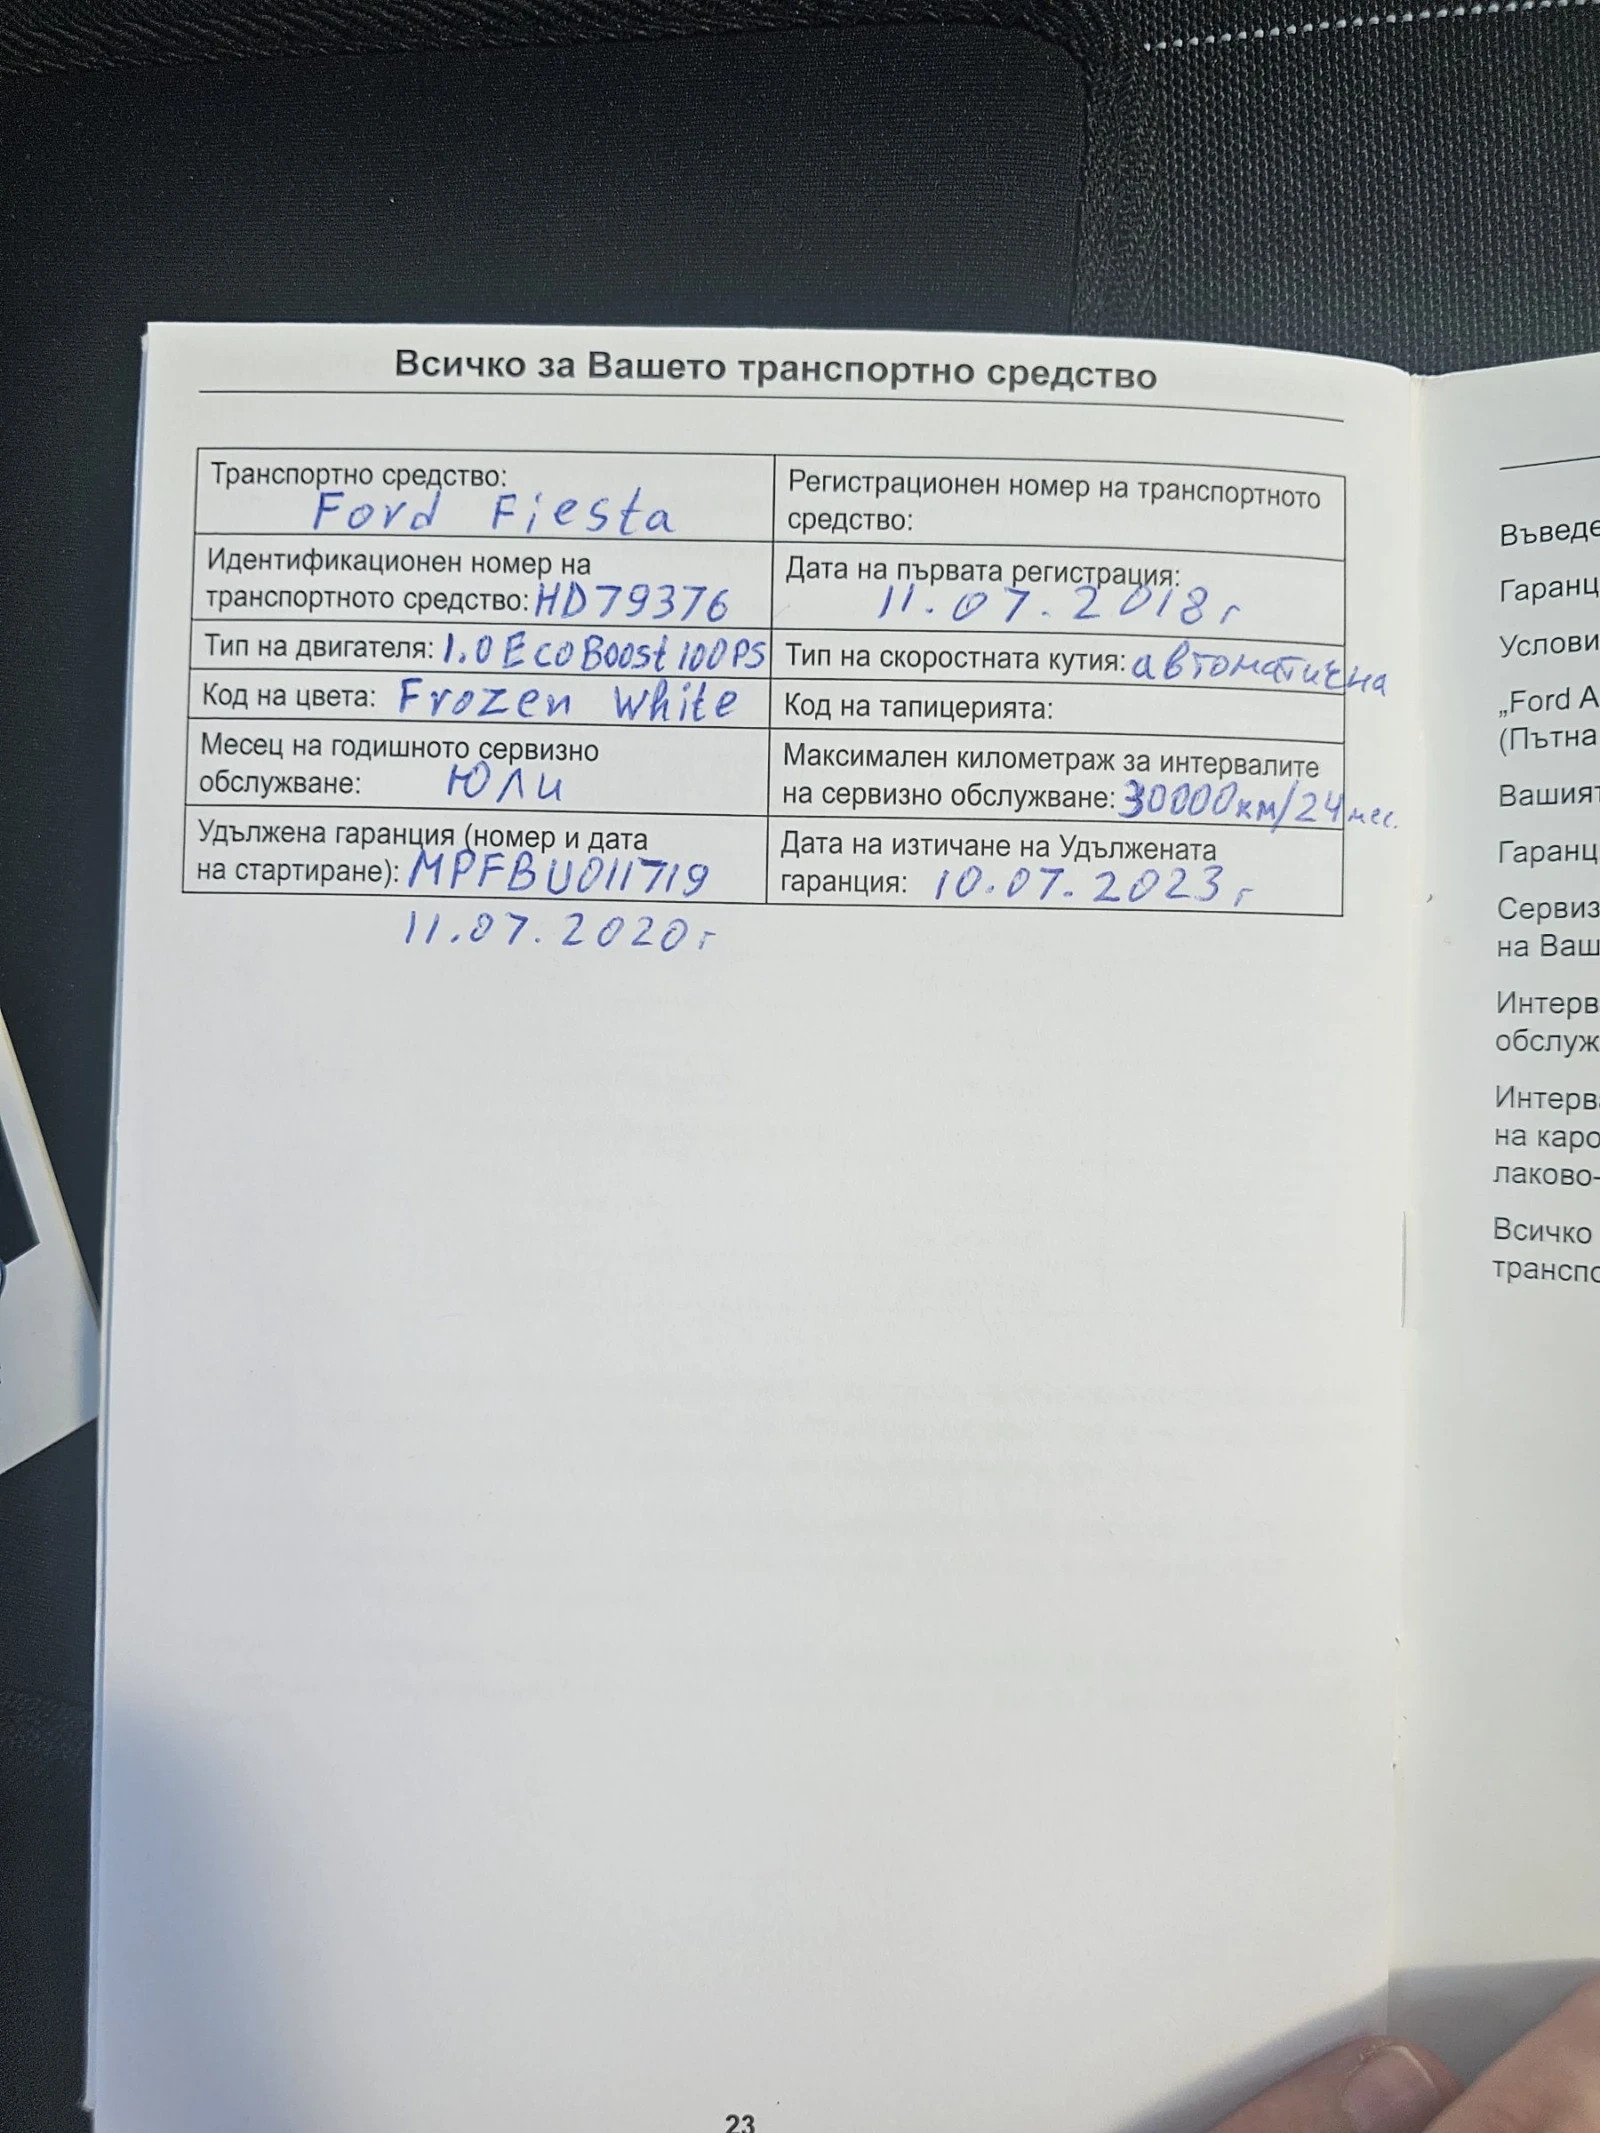 Всичко за Вашето транспортно средство
Транспортно средство:
Ford Fiesta
Регистрационен номер на транспортното
средство:
Идентификационен номер на
транспортното средство: HD79376
Дата на първата регистрация:
11.07.2018г
Тип на двигателя: 1.0 EcoBoost 100PS
Тип на скоростната кутия: автоматична
Код на цвета: Frozen White
Код на тапицерията:
Месец на годишното сервизно
обслужване: Юли
Максимален километраж за интервалите
на сервизно обслужване: 30000км/24мес.
Удължена гаранция (номер и дата
на стартиране): MPFBU011719
11.07.2020г
Дата на изтичане на Удължената
гаранция: 10.07.2023г
23
Въведе
Гаранц
Услови
„Ford A
(Пътна
Вашият
Гаранц
Сервиз
на Ваш
Интерв
обслуж
Интерва
на каро
лаково-
Всичко
транспо